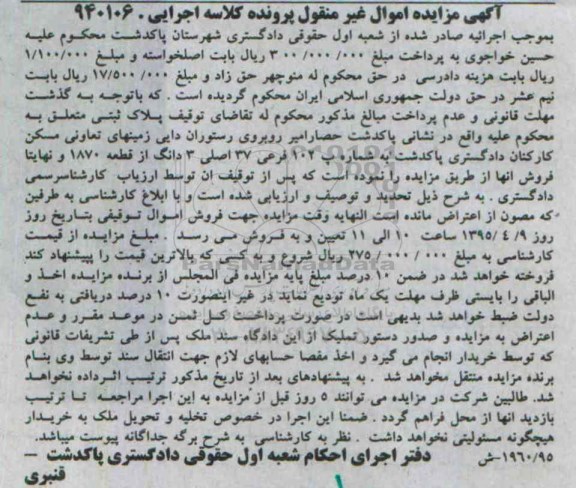 آگهی مزایده اموال غیر منقول پرونده کلاسه اجرایی . ۹۴۰۱۰۶
بموجب اجرائیه صادر شده از شعبه اول حقوقی دادگستری شهرستان پاکدشت محکوم علیه
حسین خواجوی به پرداخت مبلغ ۳۰۰/۰۰۰/۰۰۰ ریال بابت اصلخواسته و مبلغ ۱/۱۰۰/۰۰۰
ریال بابت هزینه دادرسی در حق محکوم له منوچهر حق زاد و مبلغ ۱۷/۵۰۰/۰۰۰ ریال بابت
نیم عشر در حق دولت جمهوری اسلامی ایران محکوم گردیده است . که باتوجه به گذشت
مهلت قانونی و عدم پرداخت مبالغ مذکور محکوم له تقاضای توقیف پلاک ثبتی متعلق به
محکوم علیه واقع در نشانی پاکدشت حصارامیر روبروی رستوران دایی زمینهای تعاونی مسکن
کارکنان دادگستری پاکدشت به شماره ب ۱۰۲ فرعی ۳۷ اصلی ۳ دانگ از قطعه ۱۸۷۰ و نهایتا
فروش انها از طریق مزایده را نموده است که پس از توقیف ان توسط ارزیاب کارشناسرسمی
دادگستری . به شرح ذیل تحدید و توصیف و ارزیابی شده است و با ابلاغ کارشناسی به طرفین
که مصون از اعتراض مانده است النهایه وقت مزایده جهت فروش اموال توقیفی بتاریخ روز
روز ۹/ ۴/ ۱۳۹۵ ساعت ۱۰ الی ۱۱ تعیین و به فروش می رسد . مبلغ مزایده از قیمت
کارشناسی به مبلغ ۲۷۵/۰۰۰/۰۰۰ ریال شروع و به کسی که بالاترین قیمت را پیشنهاد کند
فروخته خواهد شد در ضمن ۱۰ درصد مبلغ پایه مزایده فی المجلس از برنده مزایده اخذ و
الباقی را بایستی ظرف مهلت یک ماه تودیع نماید در غیر اینصورت ۱۰ درصد دریافتی به نفع
دولت ضبط خواهد شد بدیهی است در صورت پرداخت کل ثمن در موعد مقرر و عدم
اعتراض به مزایده و صدور دستور تملیک از این دادگاه سند ملک پس از طی تشریفات قانونی
که توسط خریدار انجام می گیرد و اخذ مفصا حسابهای لازم جهت انتقال سند توسط وی بنام
برنده مزایده منتقل مخواهد شد . به پیشنهادهای بعد از تاریخ مذکور ترتیب اثرداده نخواهد
شد. طالبین شرکت در مزایده می توانند ۵ روز قبل از مزایده به این اجرا مراجعه تا ترتیب
بازدید انها از محل فراهم گردد . ضمنا این اجرا در خصوص تخلیه و تحویل ملک به خریدار
هیچگونه مسئولیتی نخواهد داشت . نظر به کارشناسی به شرح برگه جداگانه پیوست میباشد.
۱۹۶۰/۹۵-ش دفتر اجرای احکام شعبه اول حقوقی دادگستری پاکدشت –
قنبری